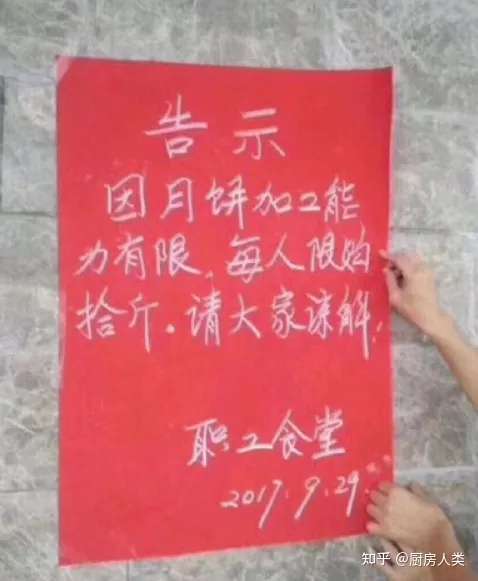 告示
因月饼加工能
力有限,每人限购
拾斤。请大家谅解!
职工食堂
2017.9.29.
知乎 @厨房人类